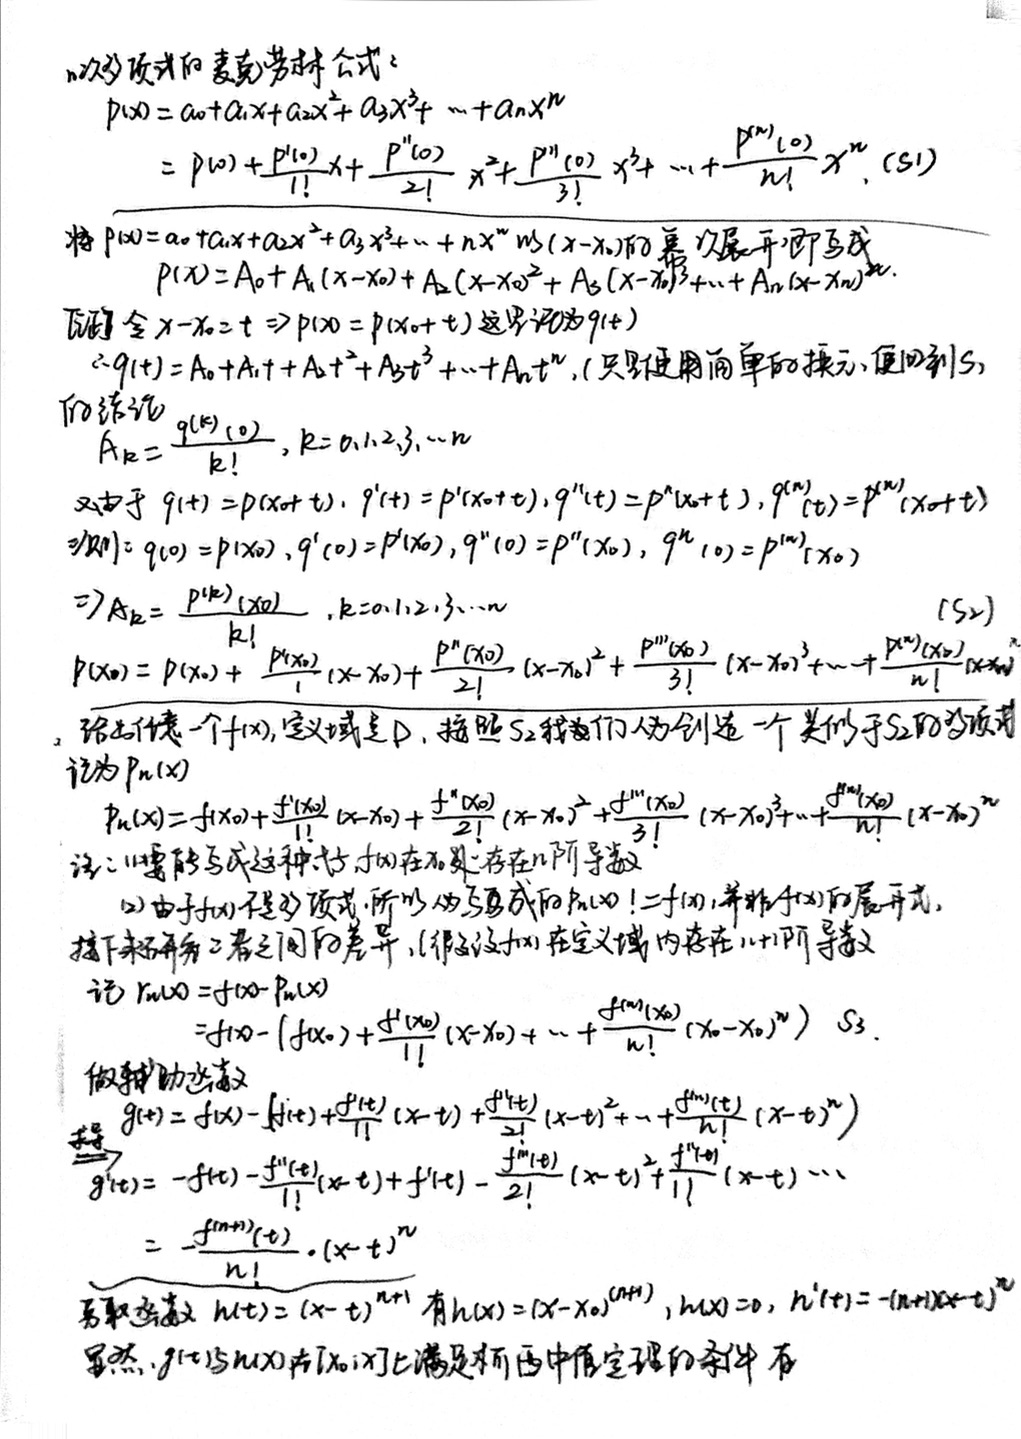 n次多项式的麦克劳林公式:
p(x) = a0+a1x+a2x²+a3x³+ … +anxⁿ
= p(0) + p'(0)/1! x + p''(0)/2! x² + p'''(0)/3! x³+ … + p⁽ⁿ⁾(0)/n! xⁿ. (S1)
将 p(x)=a0+a1x+a2x²+a3x³+…+nxⁿ 以(x-x0)的幂次展开,即写成
p(x)=A0+A1(x-x0)+A2(x-x0)²+A3(x-x0)³+…+An(x-xn)ⁿ.
令 x-x0=t ⇒ p(x)=p(x0+t) 这里记为q(t)
∴ q(t)=A0+A1t+A2t²+A3t³+…+Antⁿ, (只是使用简单的换元,便回到S1
的结论
Ak= q⁽ᵏ⁾(0)/k! , k=0,1,2,3,…n
又由于 q(t)=p(x0+t), q'(t)=p'(x0+t), q''(t)=p''(x0+t), q⁽ⁿ⁾(t)=p⁽ⁿ⁾(x0+t)
则: q(0)=p(x0), q'(0)=p'(x0), q''(0)=p''(x0), qⁿ(0)=p⁽ⁿ⁾(x0)
⇒ Ak= p⁽ᵏ⁾(x0)/k! , k=0,1,2,3,…n (S2)
p(x0) = p(x0) + p'(x0)/1 (x-x0) + p''(x0)/2! (x-x0)² + p'''(x0)/3! (x-x0)³+…+ p⁽ⁿ⁾(x0)/n! (x-x0)ⁿ
给出任意一个f(x),定义域是D, 按照S2我们人为创造一个类似于S2的多项式
记为Pn(x)
Pn(x)=f(x0)+ f'(x0)/1! (x-x0) + f''(x0)/2! (x-x0)² + f'''(x0)/3! (x-x0)³+…+ f⁽ⁿ⁾(x0)/n! (x-x0)ⁿ
注: (1)要能写成这种式子,f(x)在x0处存在n阶导数
(2)由于f(x)不是多项式,所以写成的Pn(x) !=f(x),并非f(x)的展开式,
接下来研究二者之间的差异,(假设f(x)在定义域内存在n+1阶导数
记 rn(x)=f(x)-Pn(x)
=f(x)-(f(x0)+ f'(x0)/1! (x-x0)+ … + f⁽ⁿ⁾(x0)/n! (x0-x0)ⁿ) S3.
做辅助函数
g(t)= f(x)-(f(t)+ f'(t)/1! (x-t) + f''(t)/2! (x-t)²+…+ f⁽ⁿ⁾(t)/n! (x-t)ⁿ)
求导
g'(t)= -f(t) - f''(t)/1! (x-t) + f'(t) - f'''(t)/2! (x-t)² + f''(t)/1! (x-t) …
= - f⁽ⁿ⁺¹⁾(t)/n! ·(x-t)ⁿ
另取函数 h(t)=(x-t)ⁿ⁺¹ 有h(x)=(x-x0)⁽ⁿ⁺¹⁾, h(x)=0, h'(t)=-(n+1)(x-t)ⁿ
显然,g(t)与h(x)在[x0,x]上满足柯西中值定理的条件 有